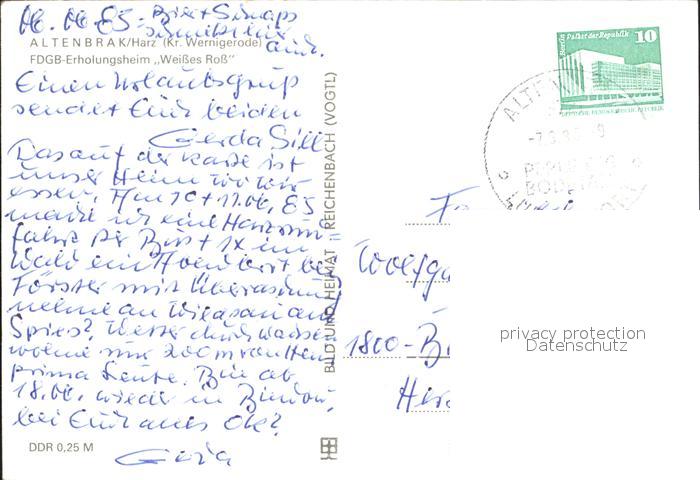 06.06.85. Bier + Schnaps
schmeckt hier
auch.
ALTENBRAK/Harz (Kr. Wernigerode)
FDGB-Erholungsheim „Weißes Roß"
Einen Urlaubsgruß
sendet Euch beiden
Gerda Sill
Das auf der Karte ist
unser Heim wo wir
essen. Am 10 + 11.06. 85
mache ich eine Harzrund=
fahrt per Bus + 1x im
Wald ein Abend bei
Förster mit Überraschung
nehme an Wiesan am
Spies? Wetter durchwachsen
wohne nur 200m von Heim
prima Leute. Bin ab
18.06. wieder in
bei Euch alles OK?
Gerda
DDR 0,25 M
BILD UND HEIMAT REICHENBACH (VOGTL)
Berlin Palast der Republik 10
DEUTSCHE DEMOKRATISCHE REPUBLIK
ALTEN
-7.6.85
Wolfga
1800-B
privacy protection
Datenschutz